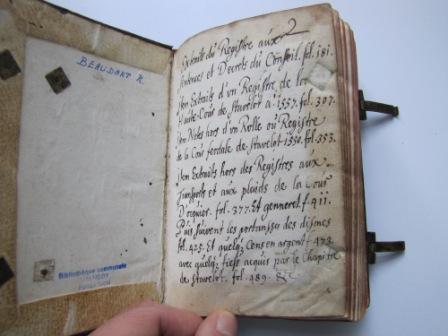 BEAUDART R.
Bibliothèque communale
2
Extraits du Registre aux
et Decrets du Conseil. fol. 181.
Item Extraits d'vn Registre de la
Cour de Stavelot a.º 1557. fol. 307.
Item Notes hors d'vn Rolle ou Registre
de la Cour feodale de Stavelot 1550. fol. 353.
Item Extraits hors des Registres aux
transports et aux plaids de la Cour
fol. 377. Et fol. 411.
Puis suivent les des dismes
fol. 425. Et quelq; Cens en argent f. 473.
avec quelq; fiefs acquis par le Chapitre
de Stavelot. fol. 489. &c